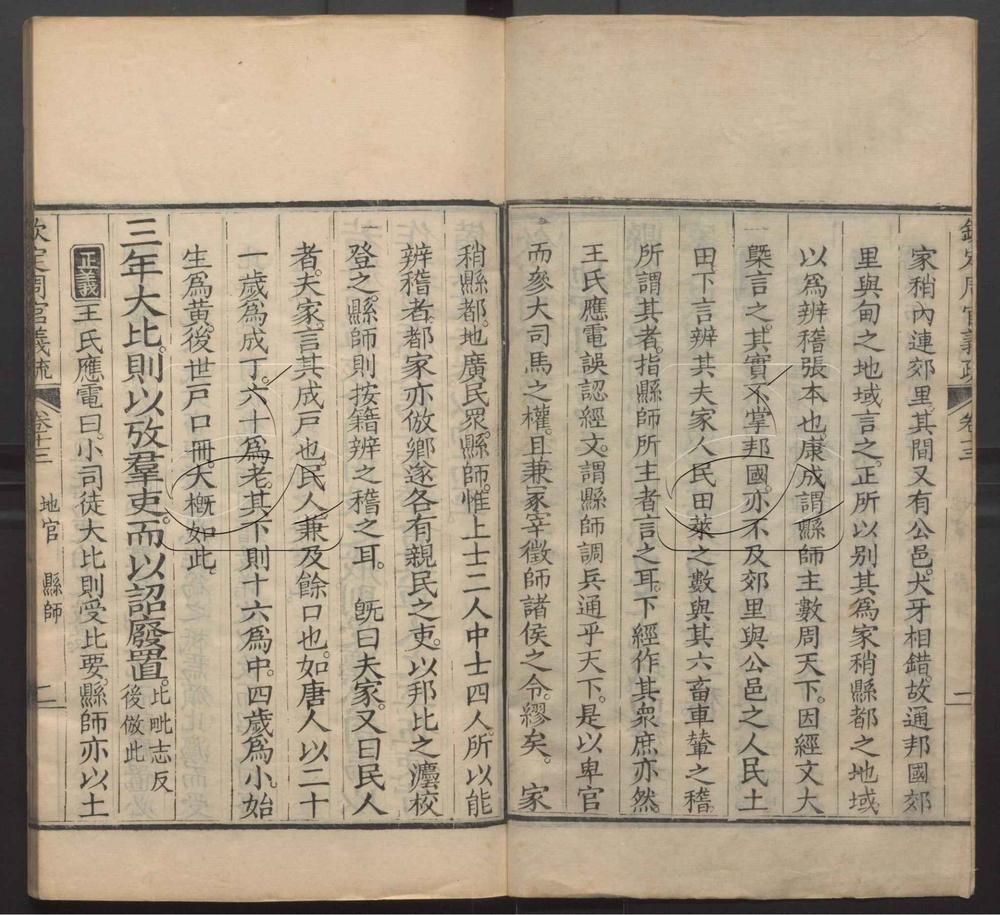 欽定周官義疏 卷十三
家稍內連郊里。其間又有公邑。犬牙相錯。故通邦國郊
里與甸之地域言之。正所以別其為家稍縣都之地域
以為辨稽張本也。康成謂縣師主數周天下。因經文大
槩言之。其實不掌邦國。亦不及郊里與公邑之人民土
田下言辨其夫家人民田萊之數與其六畜車輦之稽。
所謂其者。指縣師所主者言之耳。下經作其衆庶亦然。
王氏應電誤認經文。謂縣師調兵通乎天下。是以卑官
而參大司馬之權。且兼冢宰徵師諸侯之令。繆矣。 家
稍縣都。地廣民眾。縣師惟上士二人中士四人。所以能
辨稽者。都家亦倣鄉遂各有親民之吏。以邦比之灋校
登之縣師則按籍辨之稽之耳。 旣曰夫家。又曰民人
者。夫家言其成戶也。民人兼及餘口也。如唐人以二十
一歲為成丁。六十為老。其下則十六為中。四歲為小。始
生為黃。後世戶口冊。大槪如此。
三年大比。則以攷羣吏。而以詔廢置。比毗志反
後倣此
正義 王氏應電曰。小司徒大比則受比要。縣師亦以土
欽定周官義疏 卷十三 地官 縣師 二